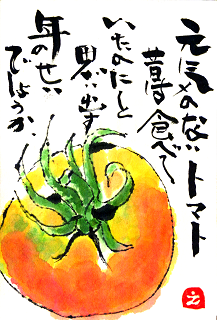 元気のないトマト
昔食べて
いたのにと
思い出す
年のせい
でしょうか
え